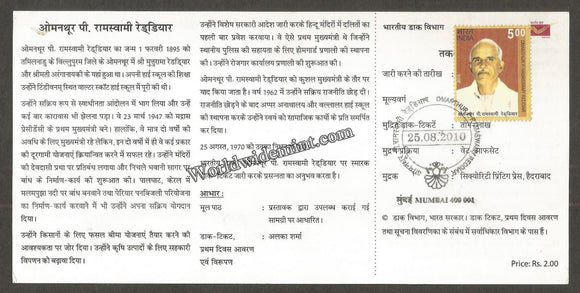 ओमनथूर पी. रामस्वामी रेड्डियार
ओमनथूर पी. रामस्वामी रेड्डियार का जन्म 1 फरवरी 1895 को
तमिलनाडु के विल्लुपुरम जिले के ओमनथूर में श्री मुथुरामा रेड्डियार
और श्रीमती अरंगानायकी के यहां हुआ था। अपनी हाई स्कूल की शिक्षा
उन्होंने टिंडीवनम् स्थित वाल्टर स्कॉट हाई स्कूल में पूरी की थी।
उन्होंने सक्रिय रूप से स्वाधीनता आंदोलन में भाग लिया और उन्हें
कई बार कारावास भी झेलना पड़ा। वे 23 मार्च 1947 को मद्रास
प्रेसीडेंसी के प्रथम मुख्यमंत्री बने। हालांकि, वे मात्र दो वर्षों की
अवधि के लिए मुख्यमंत्री रहे लेकिन, इन दो वर्षों में ही वे कई प्रकार
की दूरगामी योजनाएं क्रियान्वित करने में सफल रहे। उन्होंने मंदिरों
की देवदासी प्रथा पर प्रतिबंध लगाया और निचले भवानी सागर बांध
के निर्माण-कार्य की शुरूआत की। पालघाट, केरल में
मलमपुझा नदी पर बांध बनवाने तथा पेरियार पनबिजली परियोजना
का निर्माण-कार्य करवाने में भी उन्होंने अपना सक्रिय योगदान
दिया।
उन्होंने किसानों के लिए फसल बीमा योजनाएं तैयार करने की
आवश्यकता पर जोर दिया। उन्होंने कृषि उत्पादों के लिए सहकारी
विपणन को बढ़ावा दिया।
उन्होंने विशेष सरकारी आदेश जारी करके हिन्दू मंदिरों में दलितों का
पहली बार प्रवेश करवाया। वे ऐसे प्रथम मुख्यमंत्री थे जिन्होंने
स्थानीय पुलिस की सहायता के लिए होमगार्ड प्रणाली की स्थापना
की। उन्होंने रोजगार कार्यालय प्रणाली की शुरूआत की।
ओमनथूर पी. रामस्वामी रेड्डियार को कुशल मुख्यमंत्री के तौर पर
याद किया जाता है। वर्ष 1962 में उन्होंने सक्रिय राजनीति छोड़ दी।
राजनीति छोड़ने के बाद अप्पर अनाथालय और वल्लालर हाई स्कूल
की स्थापना करके उन्होंने स्वयं को सामाजिक कार्यों के प्रति समर्पित
कर दिया।
25 अगस्त, 1970 को उनका
रामस्वामी रेड्डियार पर स्मारक
टिकट जारी करके प्रसन्नता का अनुभव करता है।
आभार :
मूल पाठ : प्रस्तावक द्वारा उपलब्ध कराई गई
सामग्री पर आधारित।
डाक-टिकट, : अलका शर्मा
प्रथम दिवस आवरण
एवं विरूपण
भारतीय डाक विभाग
तक
जारी करने की तारीख
मूल्यवर्ग
मुद्रित डाक-टिकटें :
मुद्रण प्रक्रिया : वेट ऑफसेट
मुद्रक : सिक्योरिटी प्रिंटिंग प्रेस, हैदराबाद
भारत
INDIA
5.00
25.08.2010
मुंबई MUMBAI 400 001
© डाक विभाग, भारत सरकार। डाक टिकट, प्रथम दिवस आवरण
तथा सूचना विवरणिका के संबंध में सर्वाधिकार विभाग के पास हैं।
Price: Rs. 2.00
Worldwidemint.com